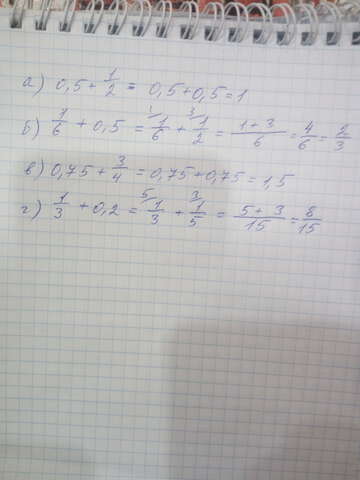 а) 0,5 + 1/2 = 0,5 + 0,5 = 1
б) 1/6 + 0,5 = 1\ 1/6 + 3\ 1/2 = (1+3)/6 = 4/6 = 2/3
в) 0,75 + 3/4 = 0,75 + 0,75 = 1,5
г) 1/3 + 0,2 = 5\ 1/3 + 3\ 1/5 = (5+3)/15 = 8/15